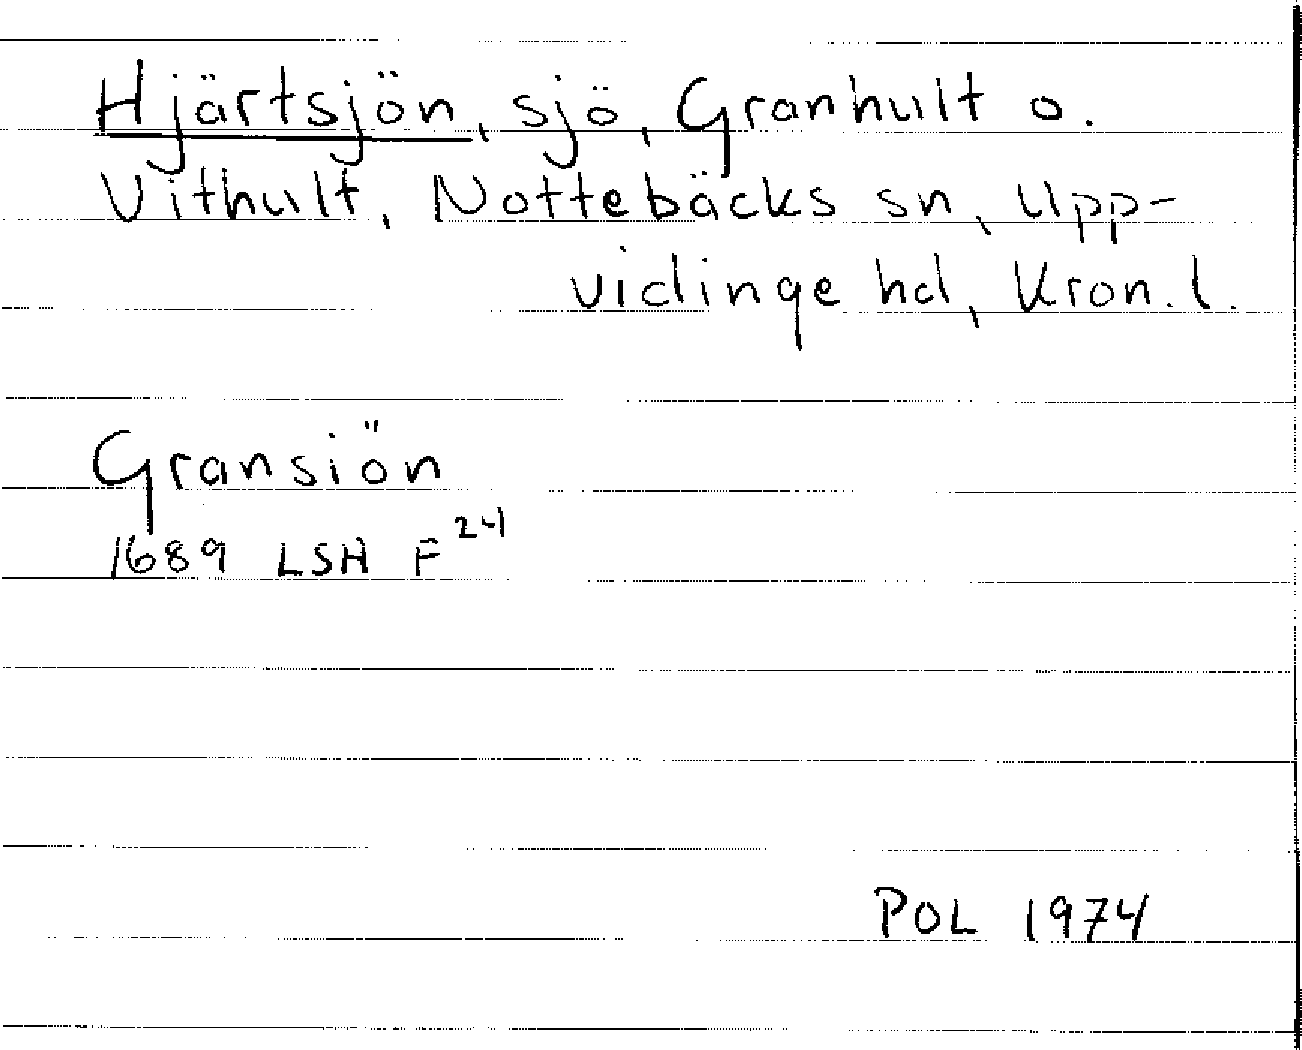 Hjärtsjön, sjö, Granhult o.
Vithult, Nottebäcks sn, Upp-
vidinge hd, Kron. l.
Gransiön
1689 LSH F 24
POL 1974